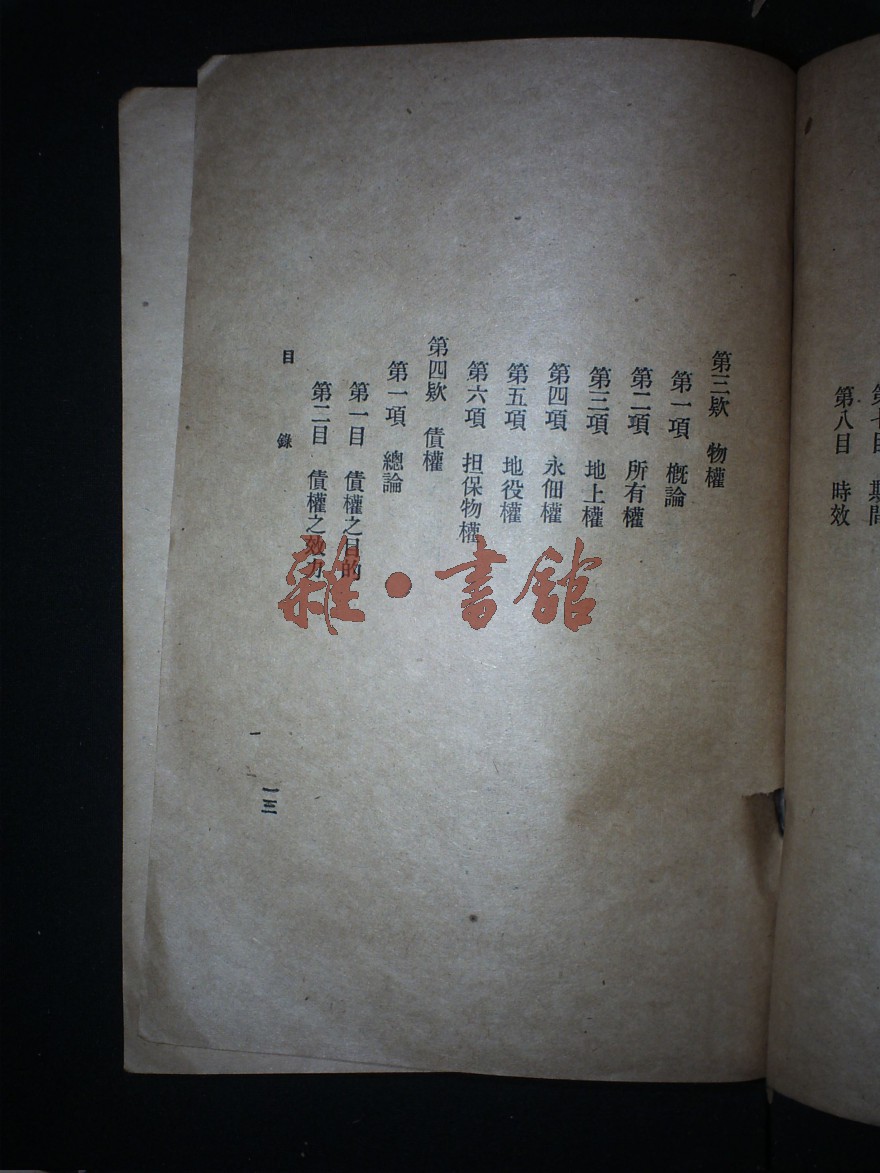 第七目 期間
第八目 時效
第三欵 物權
第一項 概論
第二項 所有權
第三項 地上權
第四項 永佃權
第五項 地役權
第六項 担保物權
第四欵 債權
第一項 總論
第一目 債權之目的
第二目 債權之效力
目 錄
一三
雜·書館